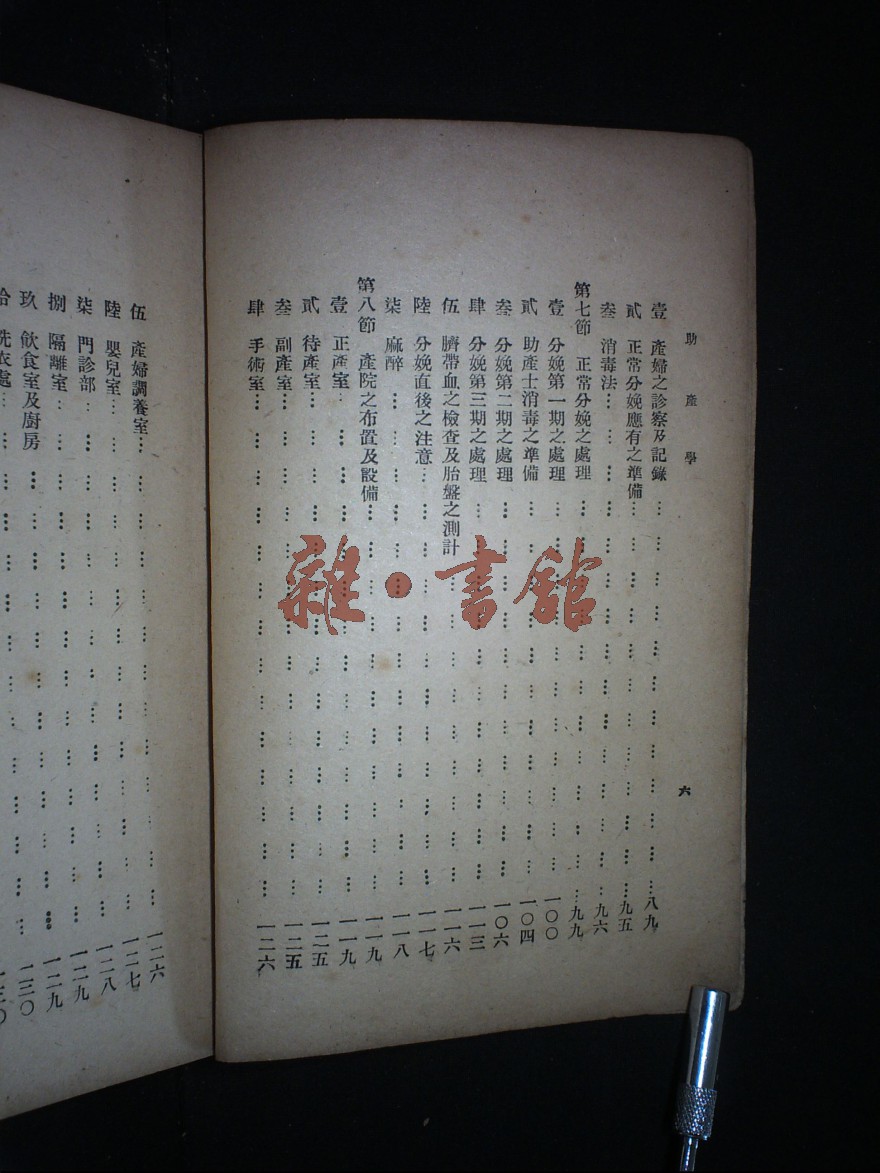 助產學
六
壹 產婦之診察及記錄……八九
貳 正常分娩應有之準備……九五
叁 消毒法……九六
第七節 正常分娩之處理……九九
壹 分娩第一期之處理……一〇〇
貳 助產士消毒之準備……一〇四
叁 分娩第二期之處理……一〇六
肆 分娩第三期之處理……一一三
伍 臍帶血之檢查及胎盤之測計……一一六
陸 分娩直後之注意……一一七
柒 麻醉……一一八
第八節 產院之布置及設備……一一九
壹 正產室……一一九
貳 待產室……一二五
叁 副產室……一二五
肆 手術室……一二六
伍 產婦調養室……一二六
陸 嬰兒室……一二七
柒 門診部……一二八
捌 隔離室……一二九
玖 飲食室及廚房……一二九
拾 洗衣處……一三〇
一三〇
雜·書館